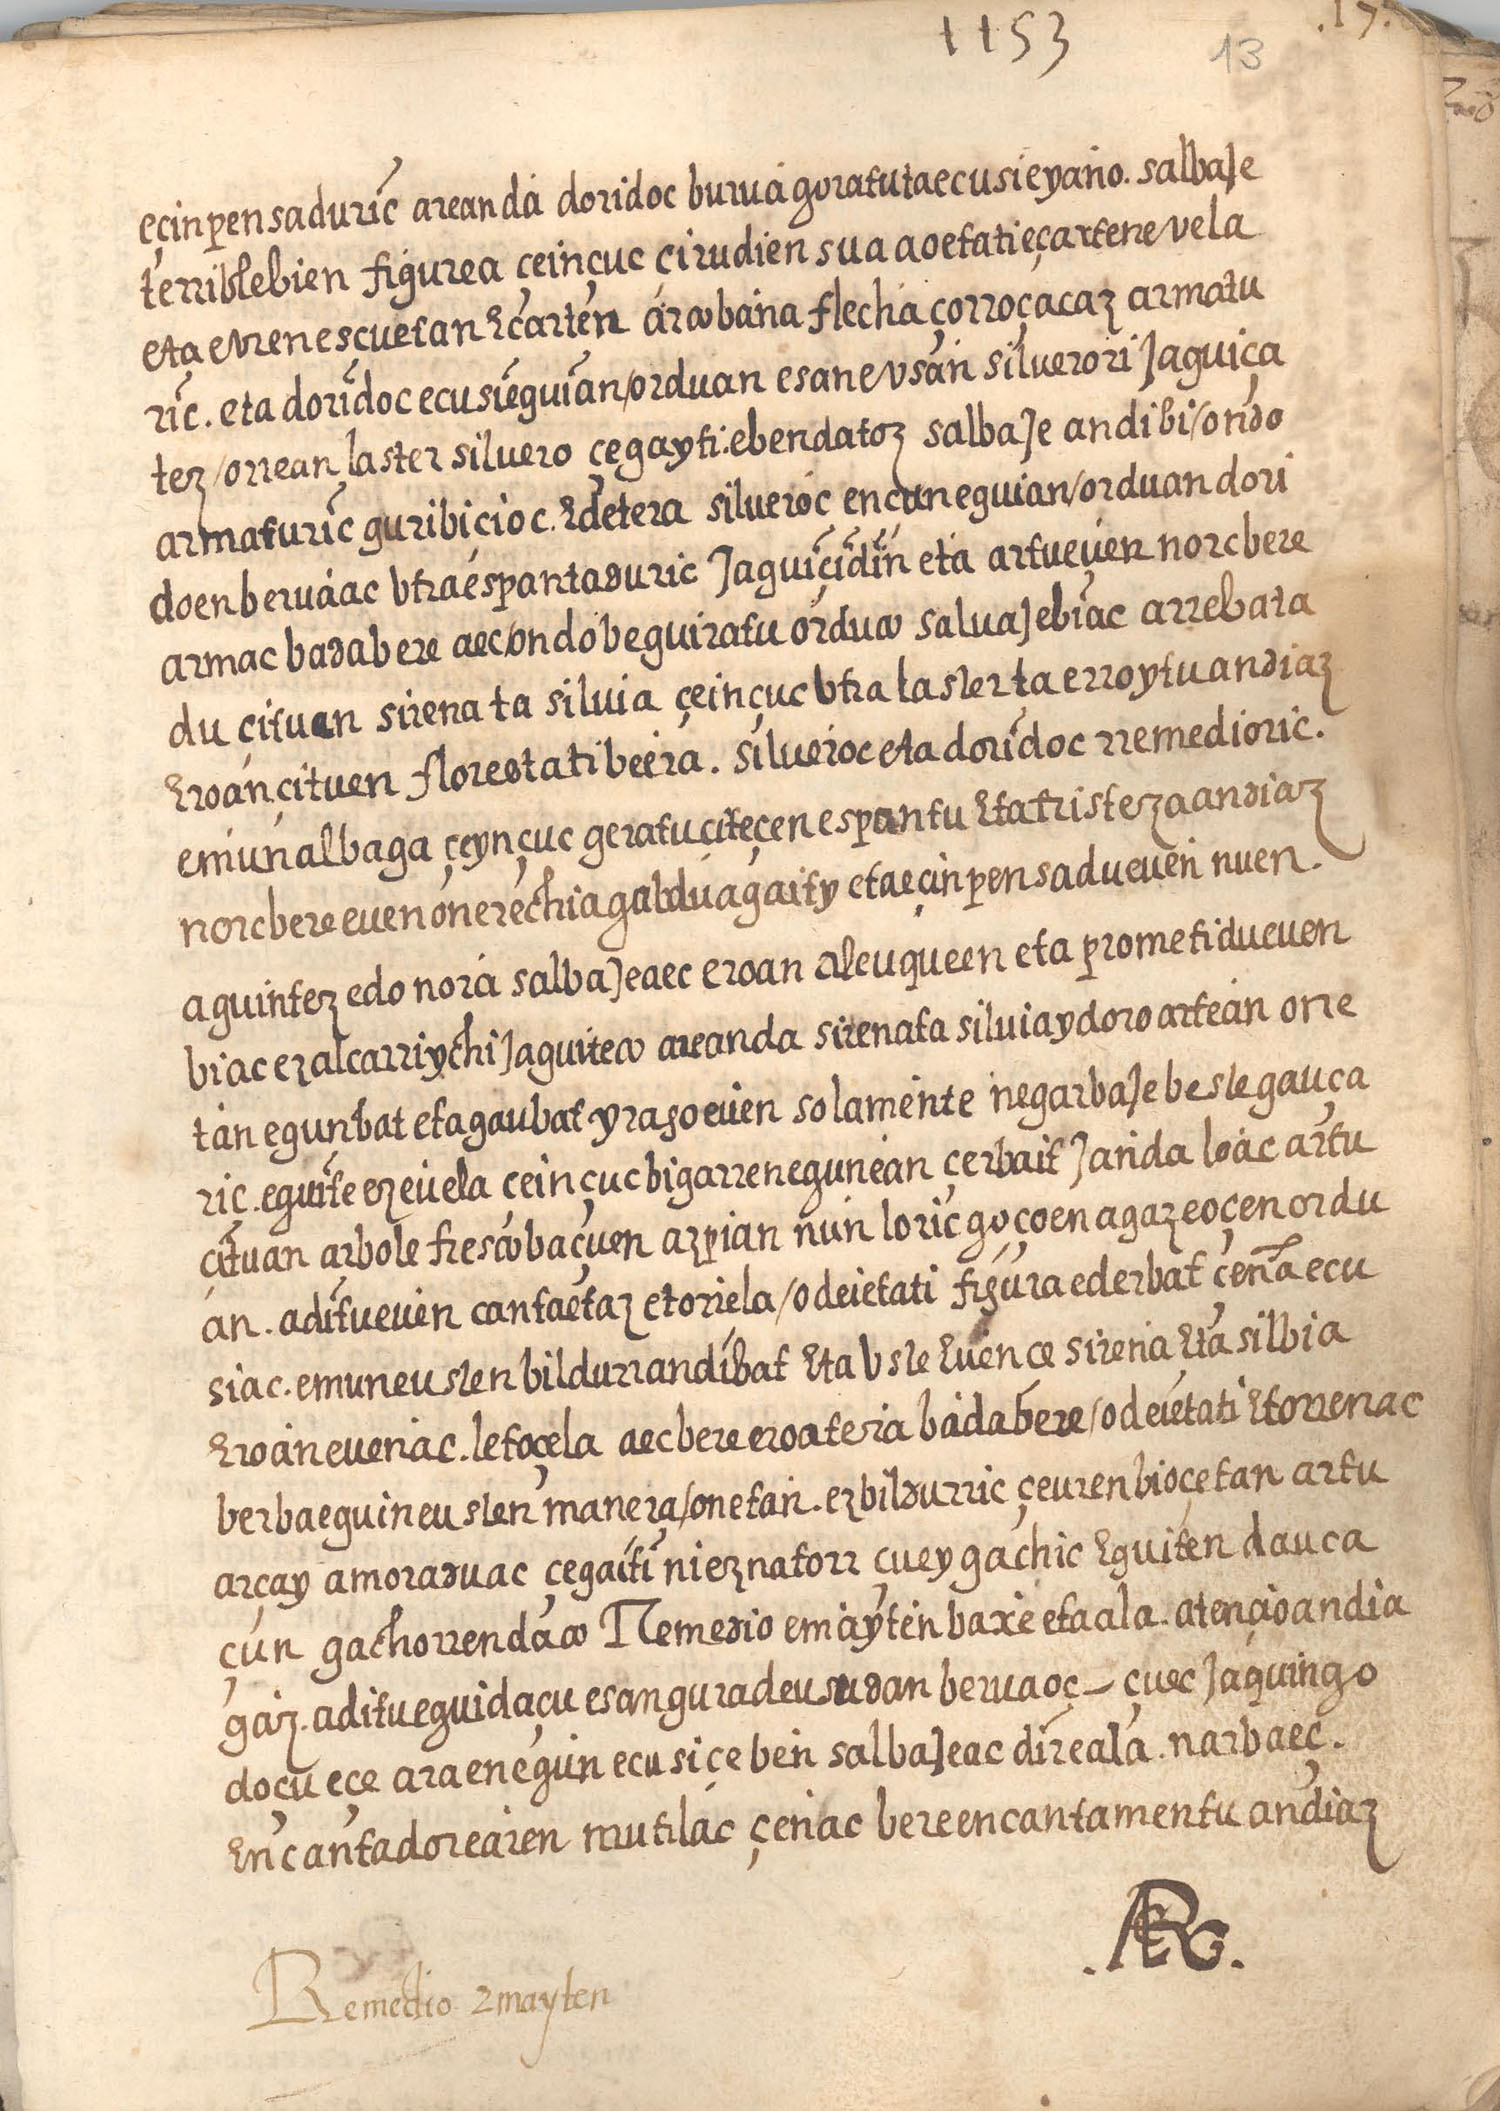 1153
13
.17.
eçinpensaduric areanda doridoc burua goratutaecusieyaño. salbaje
terriblebien figurea çeinçuc çirudien sua aoetatieçartenevela
eta euren escuetan ecarten arcobana flecha çorroçacaz armatu
ric. eta doridoc ecusieguian/orduan esanevsan silverori jaguiça
tez/orrean laster siluero çegayti.ebendatoz salbaje andibi/ondo
armaturic guribicioc. edetera silueroc encuneguian/orduan dori
doenberuaac vtraespantaduric jaguiçidin eta artueuen norcbere
armac badabere aec/ondobeguiratu orduco saluajebiac arrebata
du cituan sirena ta siluia çeinçuc vtra laster ta erroytuandiaz
eroançituen florestatibeera. silueroc eta doridoc rremedioric.
emunalbaga çeynçuc geratuciteçen espantu eta tristezaandiaz
norcbere euenonerechia galduagaity eta eçinpensadueuen nuen.
aguintez edo nora salbajeaec eroan aleuqueen eta prometidueuen
biac ezalcarriychi jaguiteco areanda sirenata siluiaydoro artean orre
tan egunbat etagaubat yrasoeuen solamente negarbaje beste gauça
ric. eguite ezeuela çeinçuc bigarrenegunean çerbait jarida loac artu
cituan arbole frescobaçuen azpian nun loric goçoenagazeoçen ordu
an. aditueuen cantaetaz etoriela/odeietati figura ederbat çena ecu
siac. emuneusten bildurrandibat eta vste euençe sirena eta silbia
eroaneuenac. letoçela aecbere eroatera badabere/odeietati etorrenac
berbaeguineusten manera/onetan. ezbildurric çeurenbioçetan artu
arçay amoraduac çegaiti nieznatorr çuey gachic eguiten dauca
çun gachorrendaco Remedio emayten baxe etaala. atençioandia
gaz. aditueguidaçu esanguradeusudan beruaoç – çuec jaquingo
doçu eçe araenegun ecusiçeben salbajeac direala. narbaeç.
encantadorearen mutilac çenac bereencantamentu andiaz
Remedio emayten